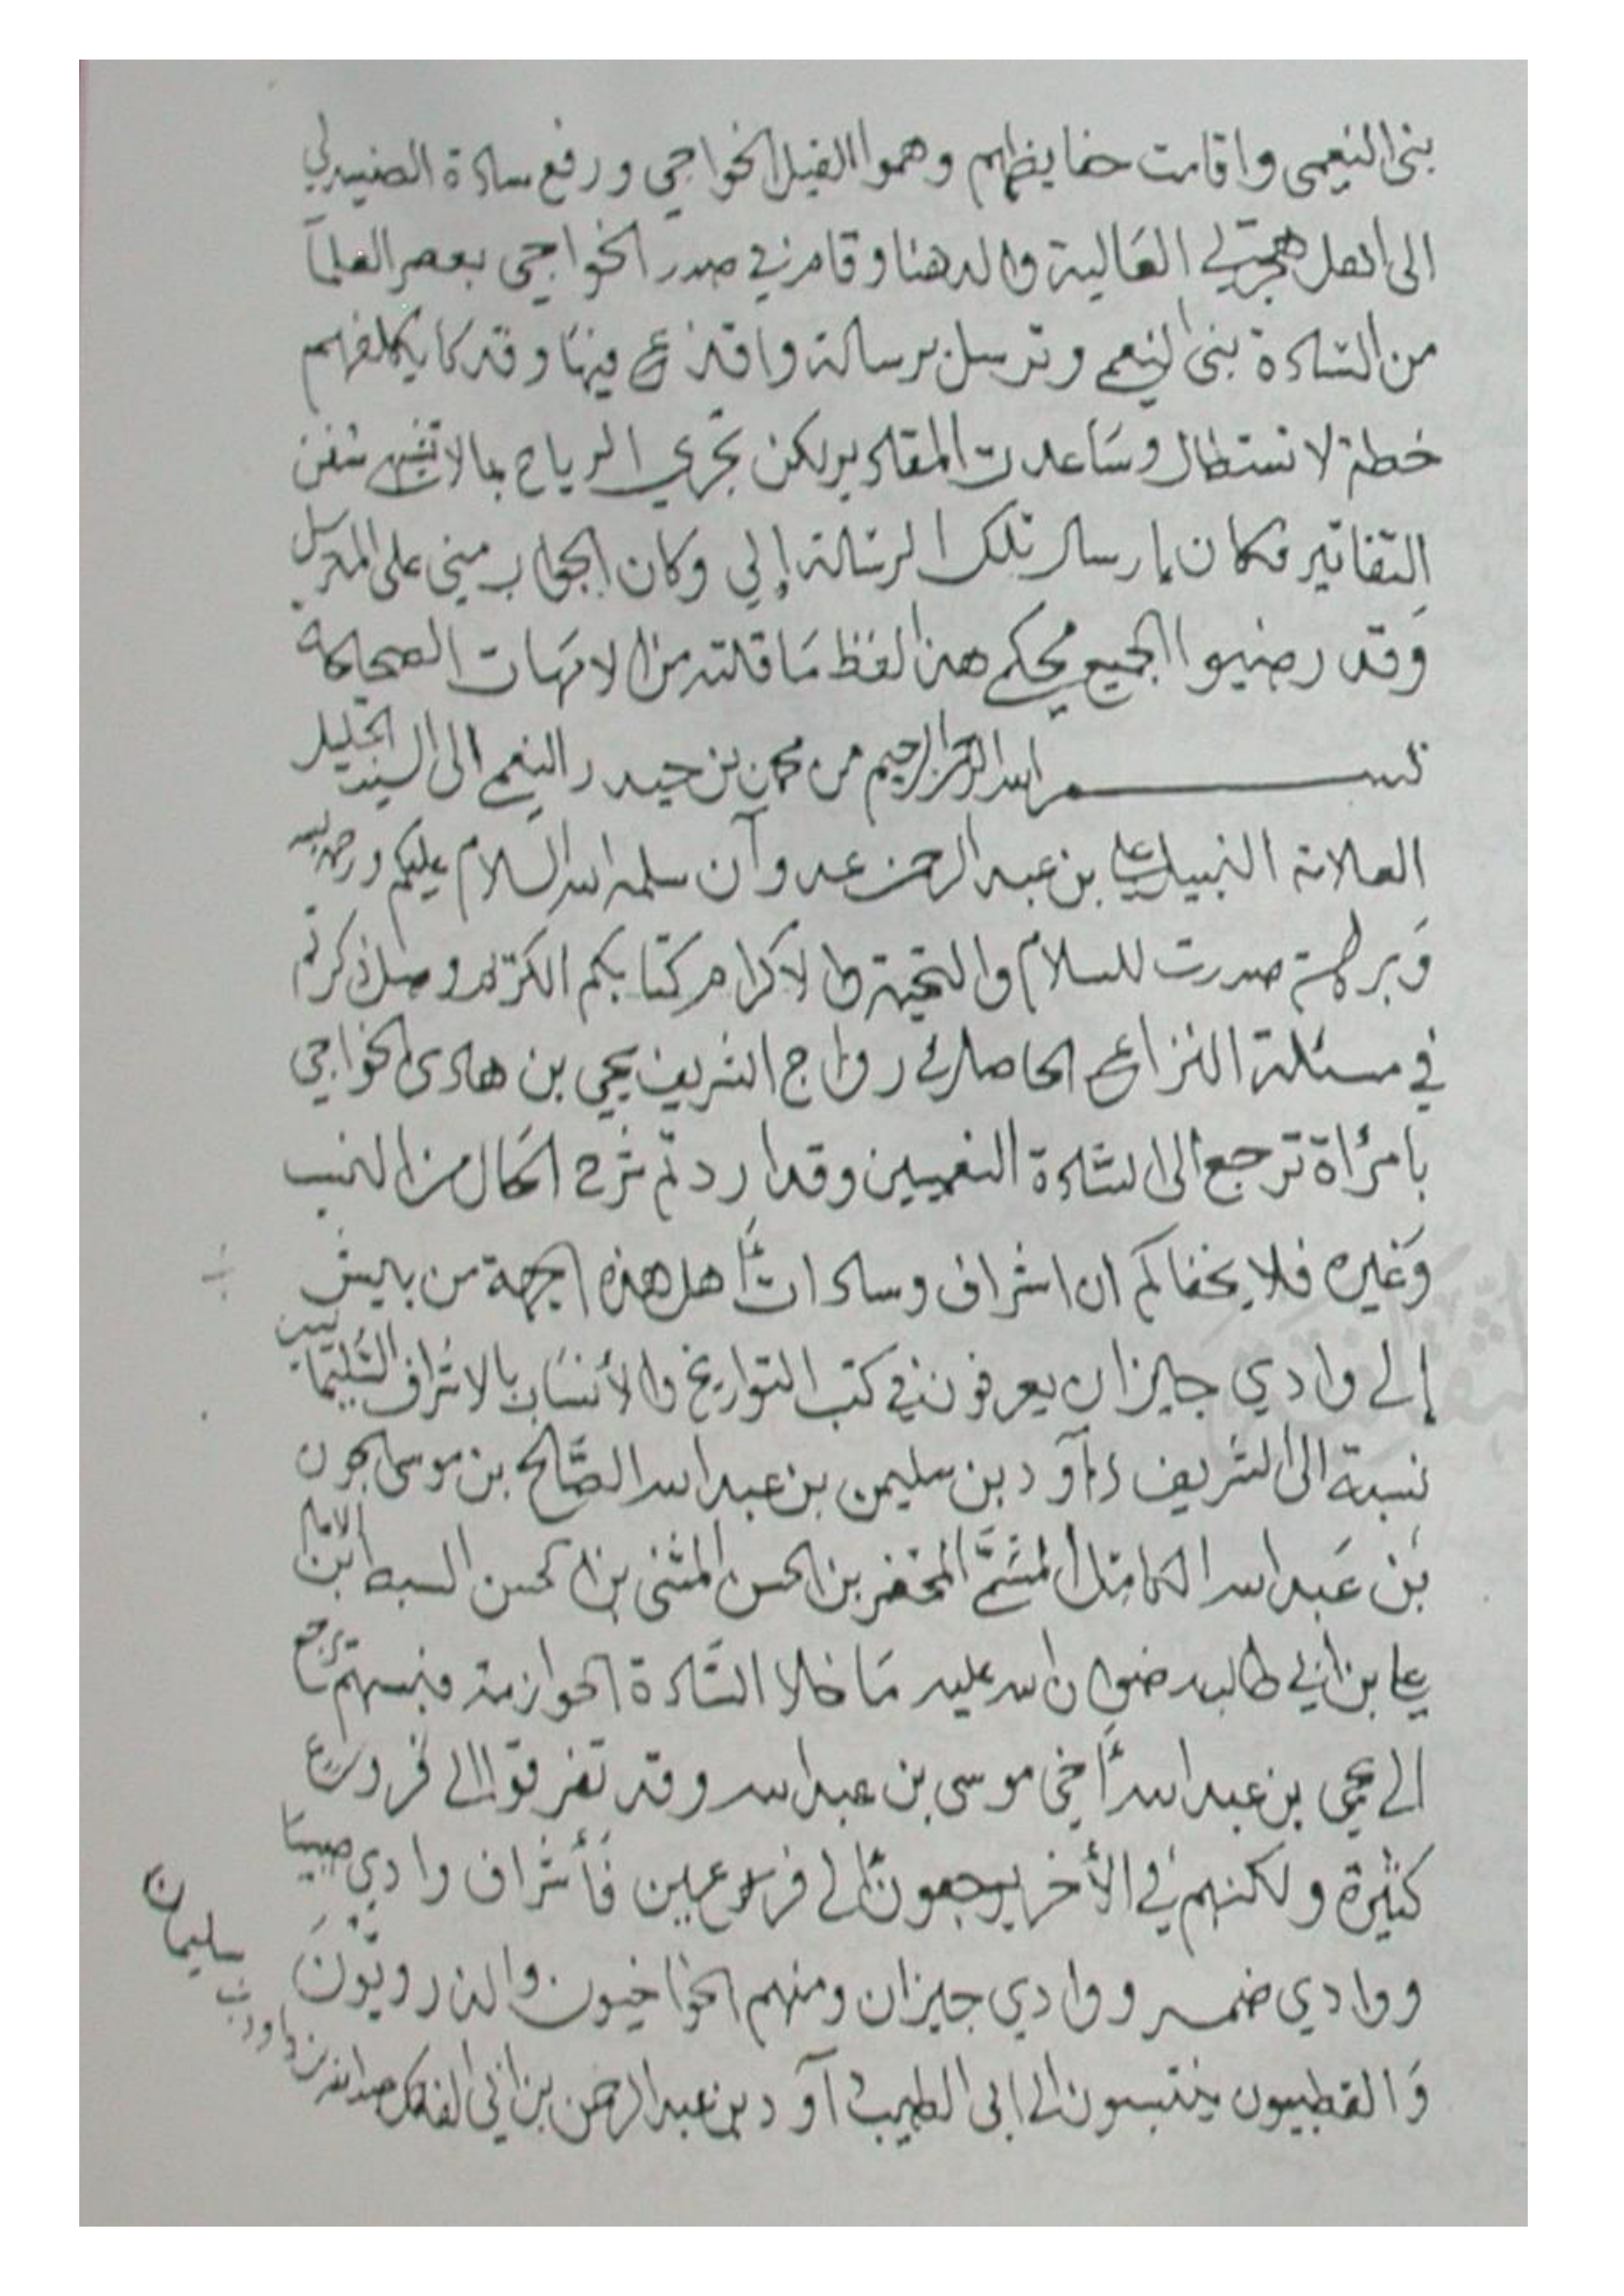 بنى النعمى واقامت حفايظهم وهموا القبل الخواجي ورفع سادة
الى اهل هجرتي العالية والدهنا وقام في صدر الخواجي بعض العلمآ
من السادة بنى النعمي وترسل برسالة واقذع فيها وقد كا يكلفهم
خطة لا تستطال وساعدت المقادير لكن تجري الرياح بمالا تشتهي سفن
التقاتير فكان إرسال تلك الرسالة إلي وكان الجواب مني على المرسل
وقد رضيوا الجميع بحكمي هذا لفظ ما قلته من الامهات
بسم الله الرحمن الرحيم من محمد بن حيدر النعمي الى السيد الجليل
العلامة النبيل علي بن عبد الرحمن عدوآن سلمه الله السلام عليكم ورحمة الله
وبركاته صدرت للسلام والتحية والاكرام وكتابكم الكريم وصل ذكرتم
في مسئلة النزاع الحاصل في زواج الشريف يحيى بن هادى الخواجي
بامرأة ترجع الى السادة النعميين وقد اردتم شرح الحال من النسب
وغيره فلا يخفاكم ان اشراف وسادات أهل هذه الجهة من بيش
إلى وادي جيزان يعرفون في كتب التواريخ والأنساب بالاشراف السليمانيين
نسبة الى الشريف داؤد بن سليمن بن عبد الله الصالح بن موسى الجون
بن عبد الله الكامل المحض بن الحسن المثنى بن الحسن السبط ابن الامام
علي بن ابي طالب رضوان الله عليه ما خلا السادة الحوازمة فنسبتهم ترجع
الى يحيى بن عبد الله أخي موسى بن عبد الله وقد تفرقوا الى فروع
كثيرة ولكنهم في الأخر يرجعون إلى فرعين فأشراف وادي صبيا
ووادي ضمد ووادي جيزان ومنهم الخواجيون والذرويون
والقطبيون ينتسبون الى ابى الطيب داؤد بن عبد الرحمن بن ابي الفاتك عبد الله بن داود بن سليمان